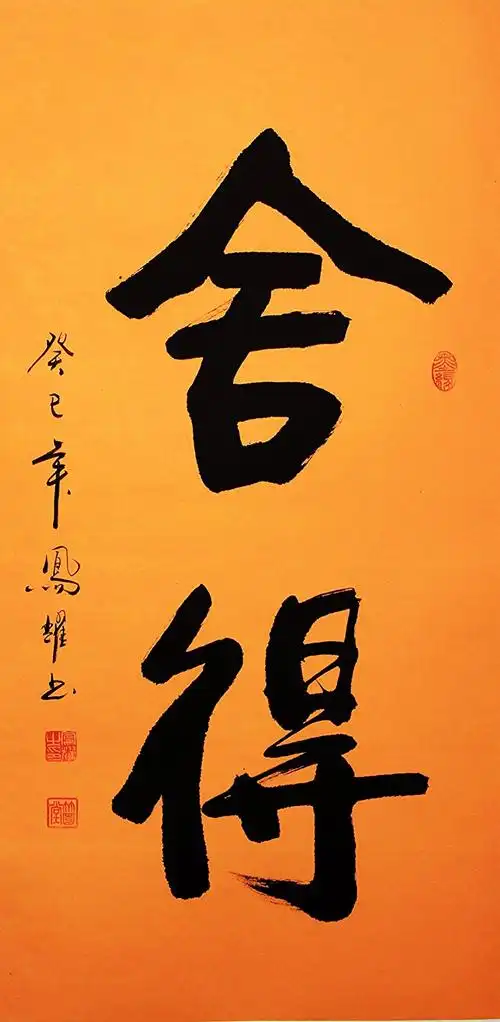 舍得
癸巳年鳳耀书